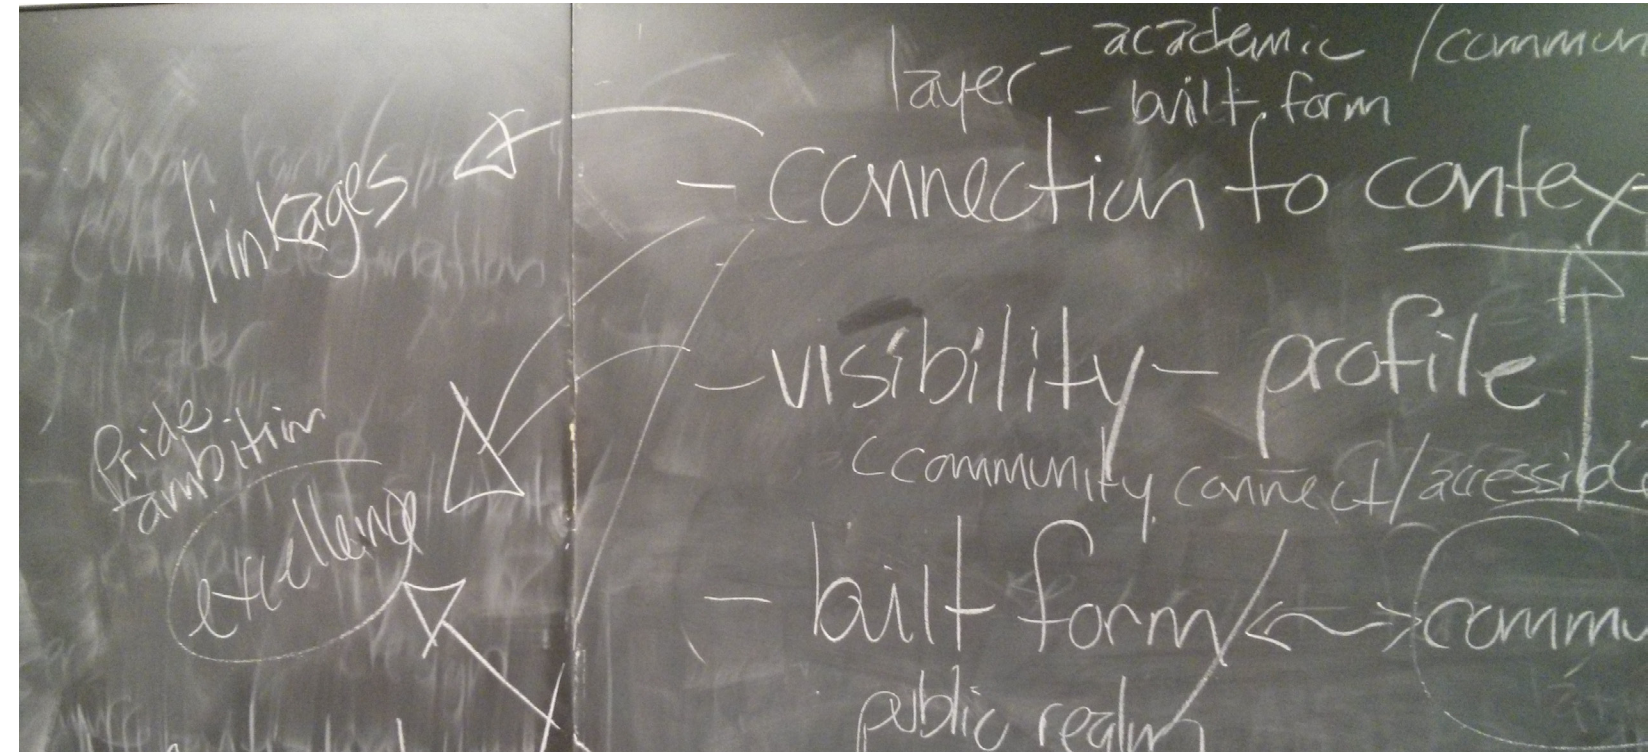 layer - academic / commun
- built form
linkages
- connection to contex
- visibility - profile
Pride
ambition
community connect/accessible
excellence
- built form / <-> commu
public realm